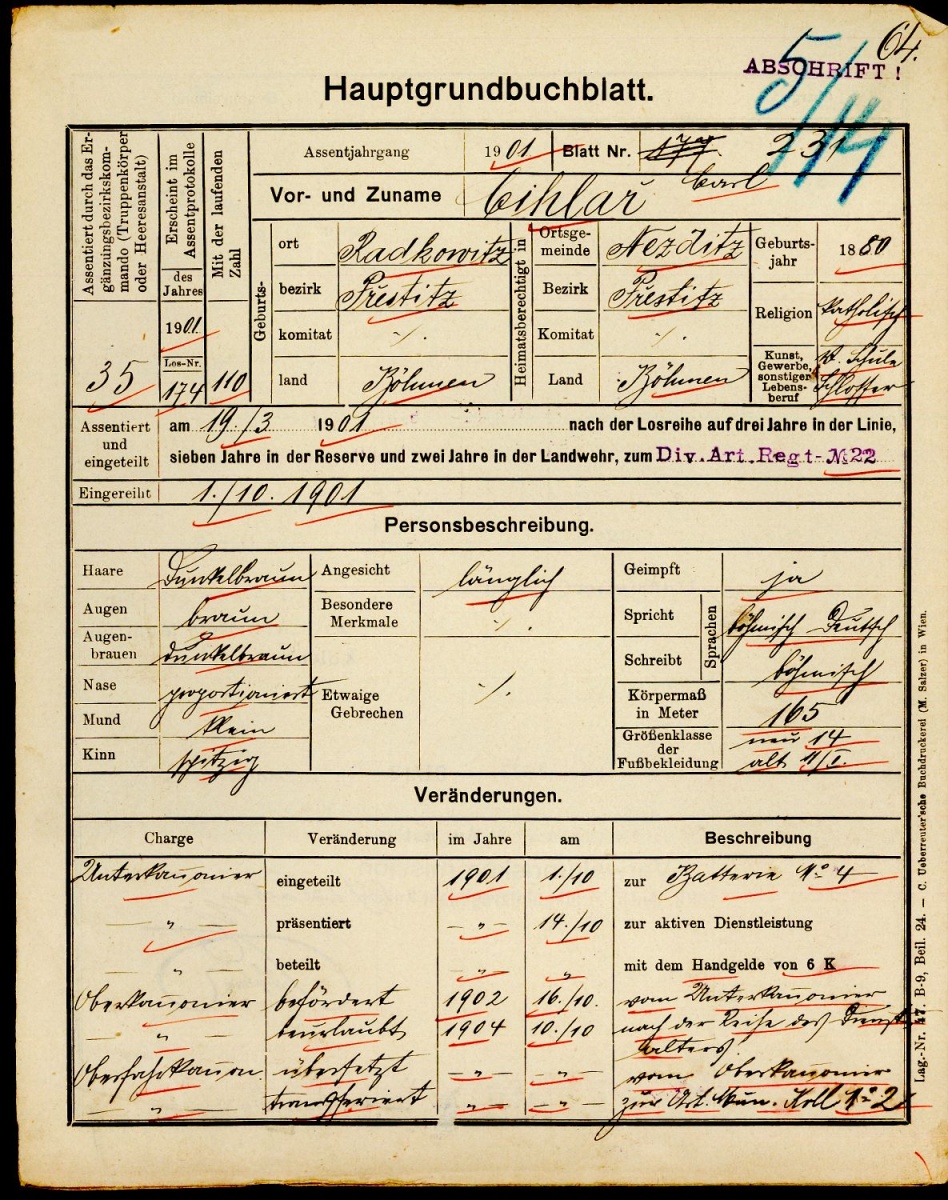 64.
5/14
ABSCHRIFT!
Hauptgrundbuchblatt.
Assentiert durch das Ergänzungsbezirkskommando (Truppenkörper oder Heeresanstalt)
35
Erscheint im Assentprotokolle
des Jahres
1901
Los-Nr.
174
Mit der laufenden Zahl
110
Assentjahrgang 1901 Blatt Nr. 231
Vor- und Zuname Cihlař Carl
Geburts-
ort Radkowitz
bezirk Přestitz
komitat ·/.
land Böhmen
Heimatsberechtigt in
Ortsgemeinde Nezditz
Bezirk Přestitz
Komitat ·/.
Land Böhmen
Geburtsjahr 1880
Religion katholisch
Kunst, Gewerbe, sonstiger Lebensberuf
Schule
Schlosser
Assentiert und eingeteilt
am 19./3 1901 nach der Losreihe auf drei Jahre in der Linie,
sieben Jahre in der Reserve und zwei Jahre in der Landwehr, zum Div. Art. Regt- № 22
Eingereiht 1./10. 1901
Personsbeschreibung.
Haare Dunkelbraun
Augen braun
Augenbrauen dunkelbraun
Nase proportioniert
Mund klein
Kinn spitzig
Angesicht länglich
Besondere Merkmale ·/.
Etwaige Gebrechen ·/.
Geimpft ja
Sprachen
Spricht böhmisch Deutsch
Schreibt böhmisch
Körpermaß in Meter 165
Größenklasse der Fußbekleidung
neu 14
alt 11/I.
Veränderungen.
Charge Veränderung im Jahre am Beschreibung
Unterkanonier eingeteilt 1901 1./10 zur Batterie No 4
— „ — präsentiert — „ — 14./10 zur aktiven Dienstleistung
— „ — beteilt — „ — „ mit dem Handgelde von 6 K
Oberkanonier befördert 1902 16./10. vom Unterkanonier
„ beurlaubt 1904 10./10 nach der Reihe des Dienst
alters
Oberfahrkanon. übersetzt — „ — — „ — vom Oberkanonier
— „ — transferiert — „ — — „ — zur Art. Mun. Koll No 2
Lag.-Nr. 47. B-9, Beil. 24. — C. Ueberreuter'sche Buchdruckerei (M. Salzer) in Wien.